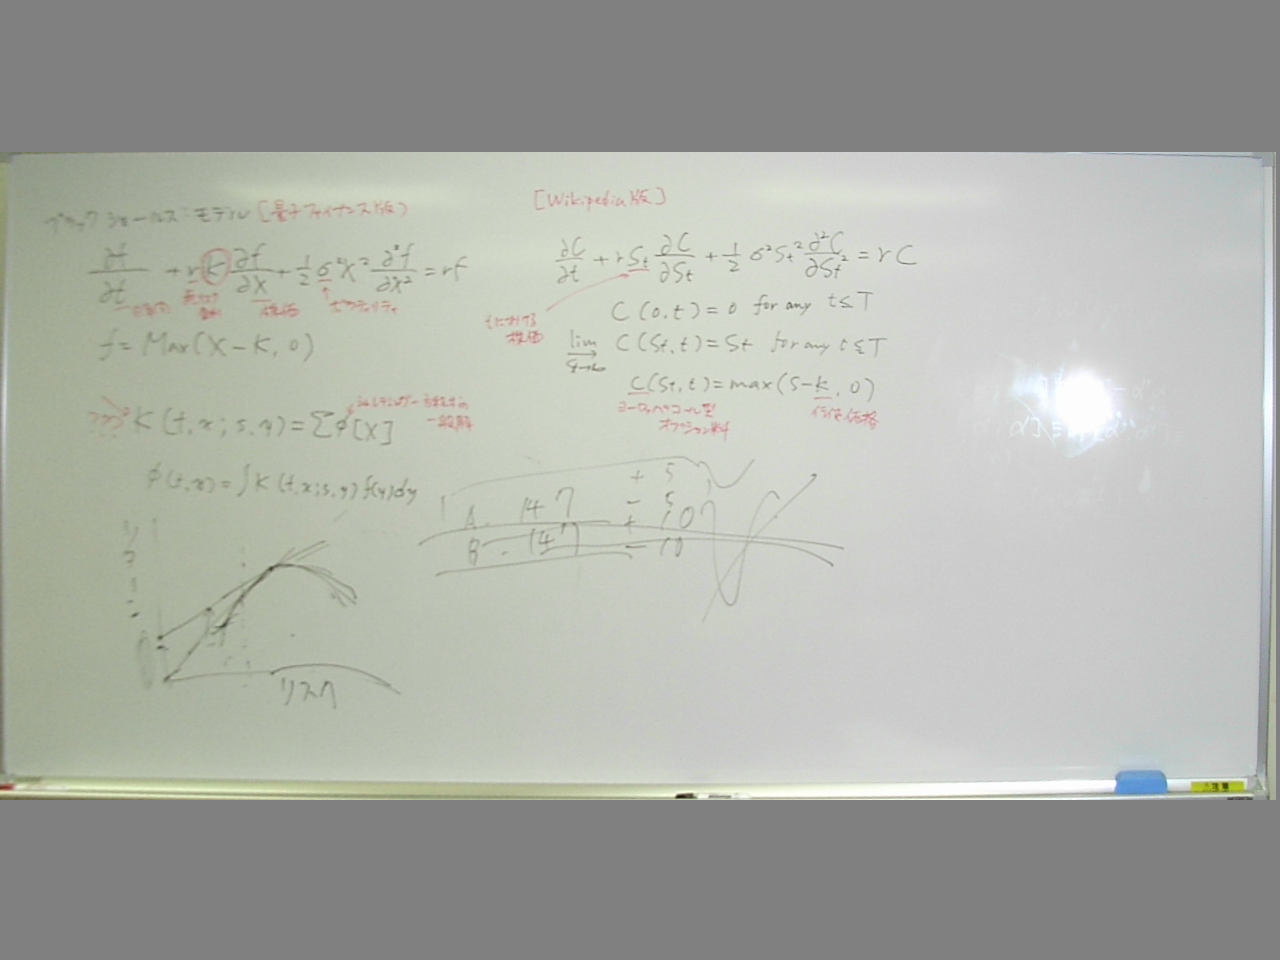 ブラックショールズ モデル [量子ファイナンス版]
∂f/∂t + rK ∂f/∂x + 1/2 σ²X² ∂²f/∂x² = rf
株価
ボラティリティ
f = Max(X − K, 0)
??? K(t, x; s, y) = Σφ[X]
シュレディンガー方程式の
一般解
φ(t, x) = ∫K(t, x; s, y) f(y) dy
リスク
[Wikipedia版]
∂C/∂t + rSt ∂C/∂St + 1/2 σ²St² ∂²C/∂St² = rC
tにおける
株価
C(0, t) = 0 for any t ≤ T
lim C(St, t) = St for any t ≤ T
C(St, t) = max(S − K, 0)
ヨーロッパコール型
オプション料
行使価格
+ 5
A. 147 − 5
+ 10
B. 147 − 10